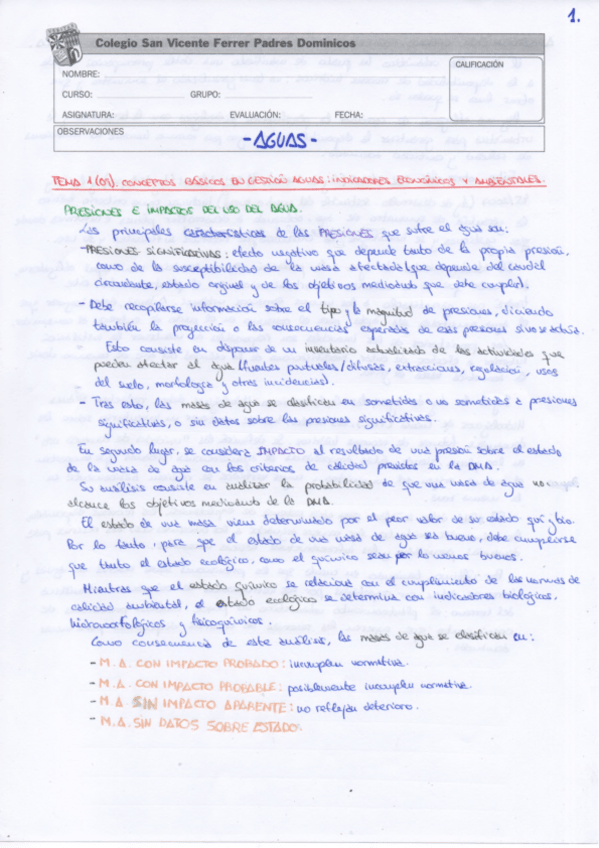 1.
Colegio San Vicente Ferrer Padres Dominicos
CALIFICACIÓN
NOMBRE:
CURSO: GRUPO:
ASIGNATURA: EVALUACIÓN: FECHA:
OBSERVACIONES
- AGUAS -
TEMA 1 (01). CONCEPTOS BÁSICOS EN GESTIÓN AGUAS: INDICADORES ECONÓMICOS Y AMBIENTALES.
PRESIONES E IMPACTOS DEL USO DEL AGUA.
Las principales características de las PRESIONES que sufre el agua son:
- PRESIONES SIGNIFICATIVAS: efecto negativo que depende tanto de la propia presión,
como de la susceptibilidad de la masa afectada (que depende del caudal
circundante, estado original y de los objetivos medioamb que debe cumplir).
- Debe recopilarse información sobre el tipo y la magnitud de presiones, diciendo
también la proyección o las consecuencias esperadas de esas presiones si no se actúa.
Esto consiste en disponer de un inventario actualizado de las actividades que
puedan afectar al agua (fuentes puntuales/difusas, extracciones, regulación, usos
del suelo, morfología y otras incidencias).
- Tras esto, las masas de agua se clasifican en sometidas o no sometidas a presiones
significativas, o sin datos sobre las presiones significativas.
En segundo lugar, se considera IMPACTO al resultado de una presión sobre el estado
de la masa de agua con los criterios de calidad previstos en la DMA.
Su análisis consiste en analizar la probabilidad de que una masa de agua no
alcance los objetivos medioamb de la DMA.
El estado de una masa viene determinado por el peor valor de su estado quí y bio.
Por lo tanto, para que el estado de una masa de agua sea bueno, debe cumplirse
que tanto el estado ecológico, como el químico sean por lo menos buenos.
Mientras que el estado químico se relaciona con el cumplimiento de las normas de
calidad ambiental, el estado ecológico se determina con indicadores biológicos,
hidromorfológicos y fisicoquímicos.
Como consecuencia de este análisis, las masas de agua se clasifican en:
- M.A. CON IMPACTO PROBADO: incumplen normativa.
- M.A. CON IMPACTO PROBABLE: posiblemente incumplen normativa.
- M.A. SIN IMPACTO APARENTE: no reflejan deterioro.
- M.A. SIN DATOS SOBRE ESTADO.